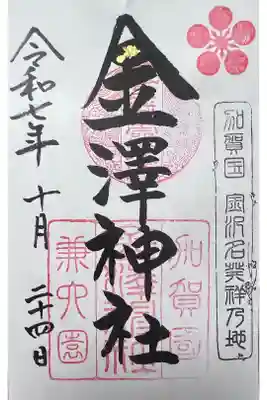 加賀国 金沢名発祥乃地
金澤神社
加賀国
兼六園
令和七年 十月 二十四日